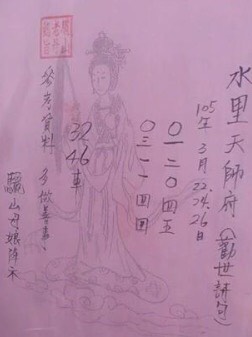 水里天師府(勸世詩句)
105年3月22.24.26日
〇一二〇四五
〇三一一四四
32 46 車
參考資料 多做善事
驪山母娘降示